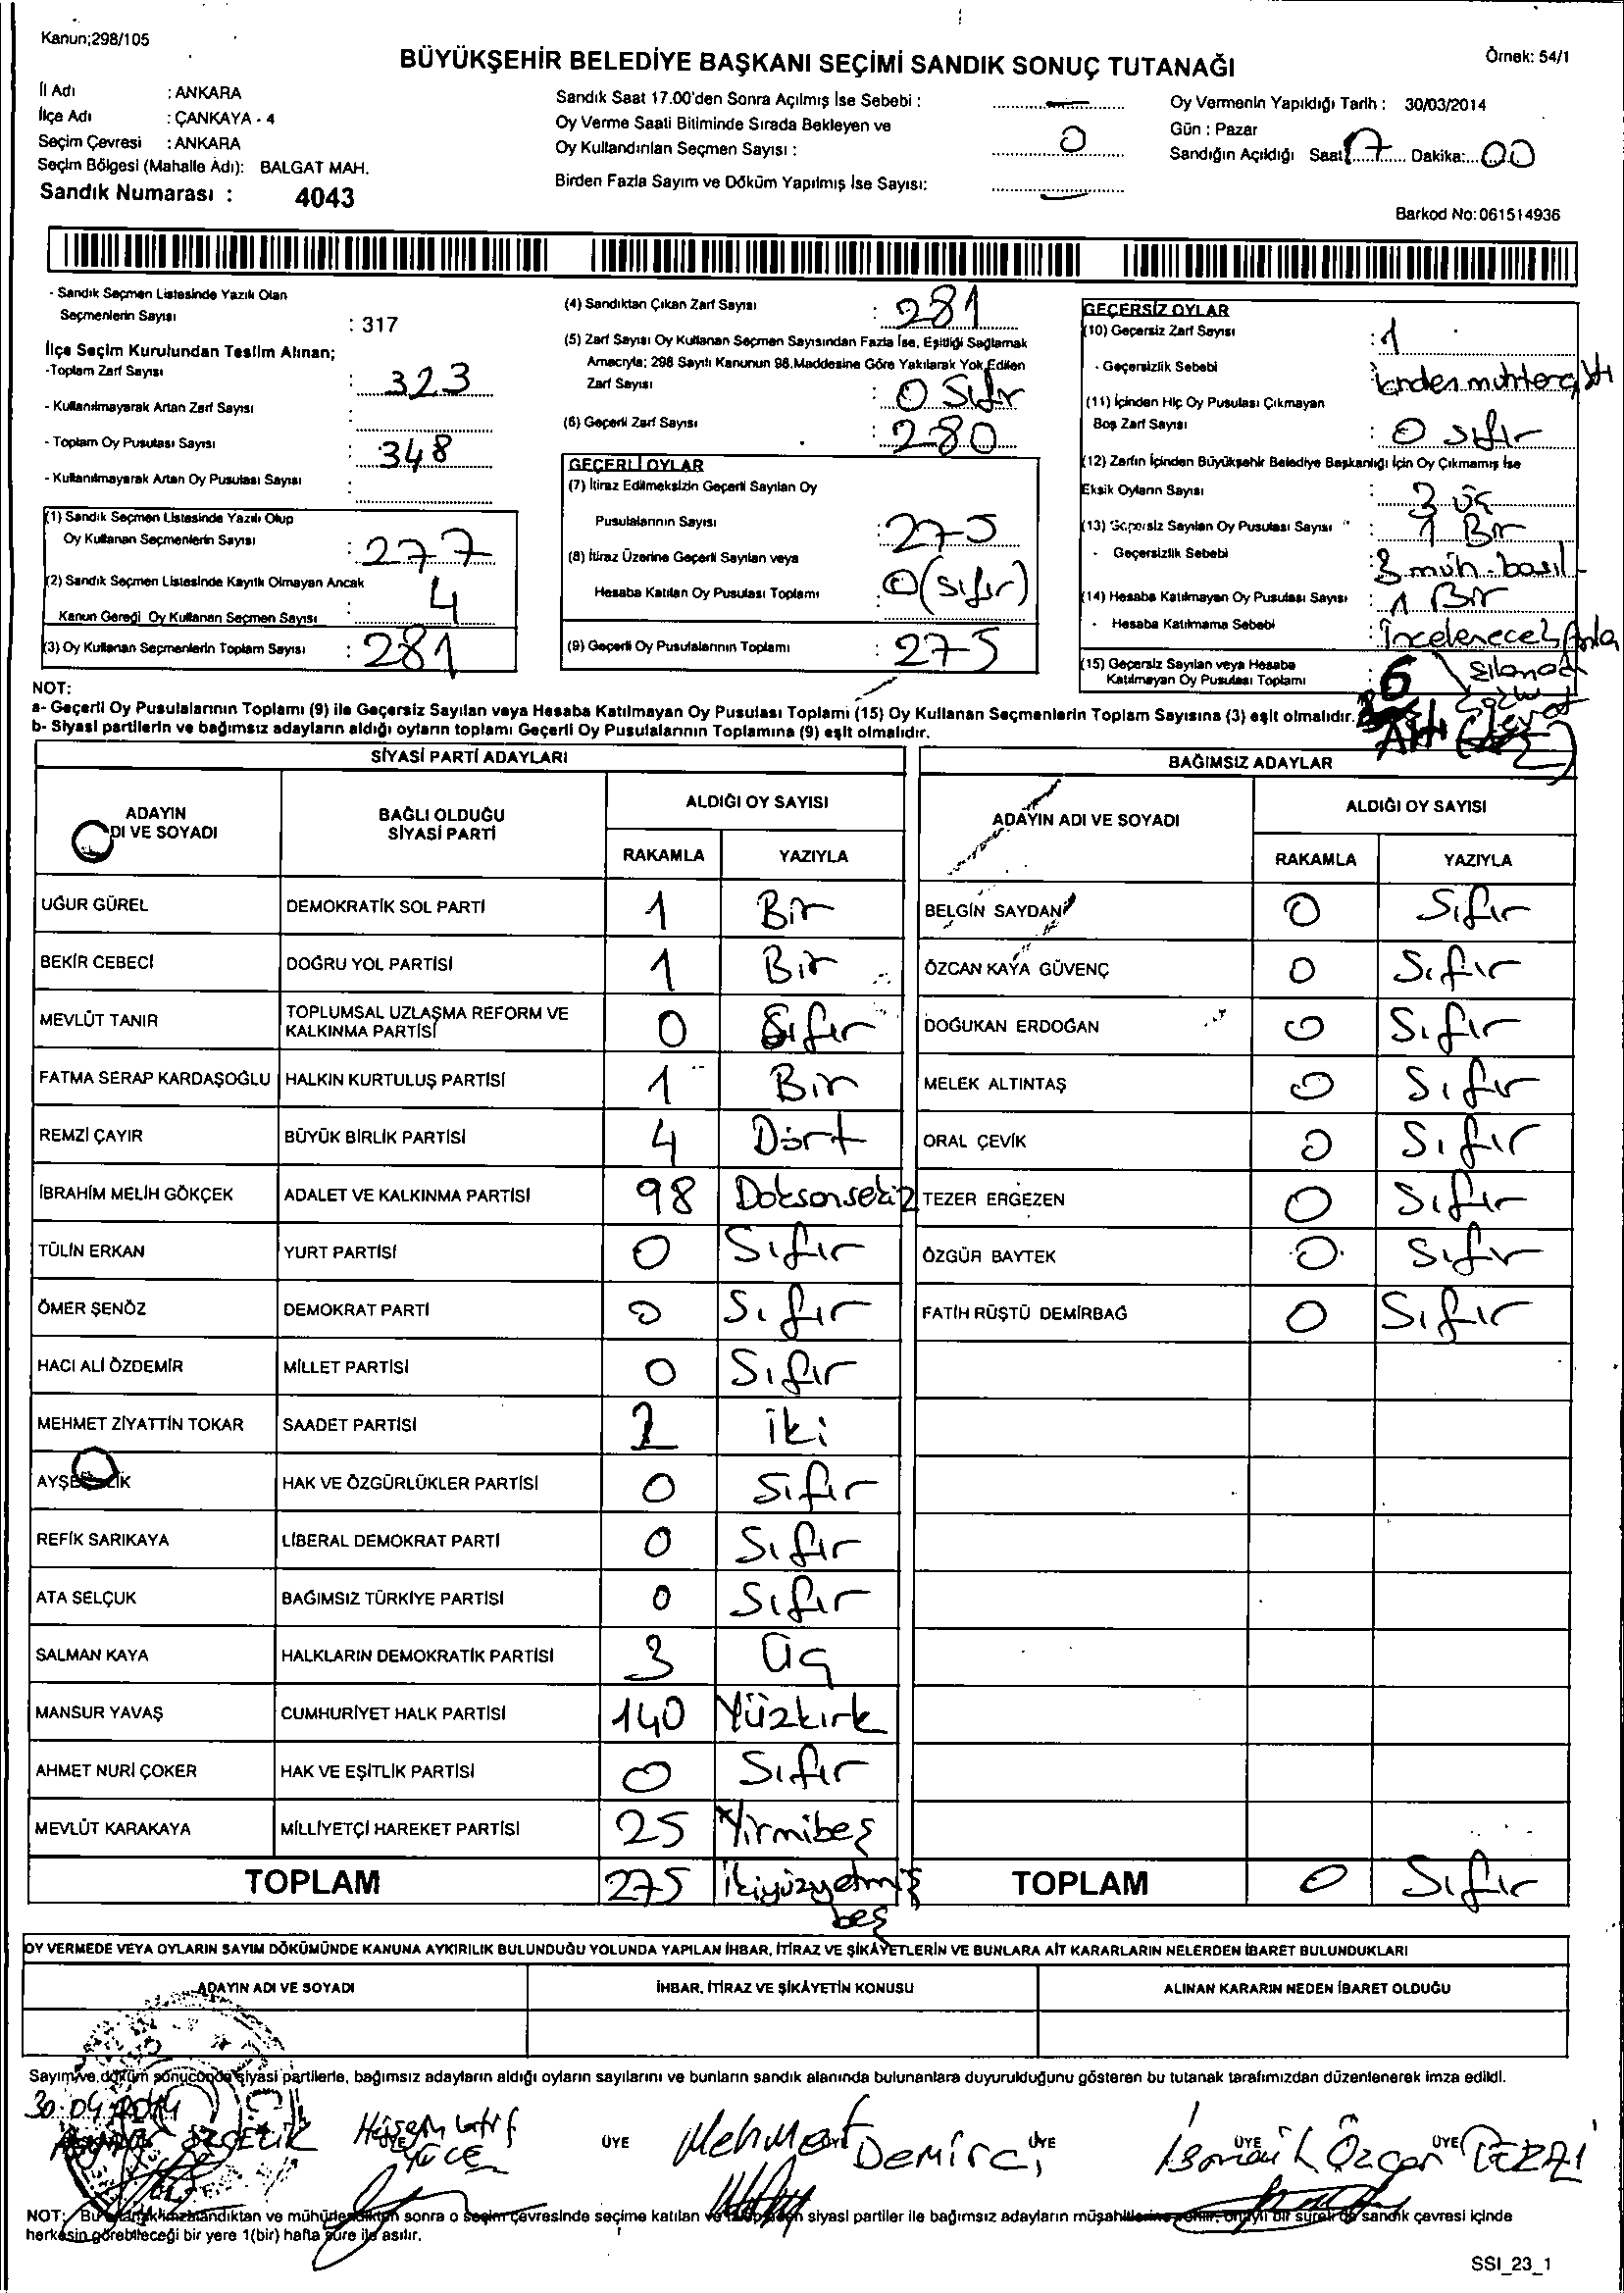 Kanun;298/105
BÜYÜKŞEHİR BELEDİYE BAŞKANI SEÇİMİ SANDIK SONUÇ TUTANAĞI
Örnek: 54/1
İl Adı : ANKARA
İlçe Adı : ÇANKAYA - 4
Seçim Çevresi : ANKARA
Seçim Bölgesi (Mahalle Adı): BALGAT MAH.
Sandık Numarası : 4043
Sandık Saat 17.00'den Sonra Açılmış İse Sebebi :
Oy Verme Saati Bitiminde Sırada Bekleyen ve
Oy Kullandırılan Seçmen Sayısı : 0
Birden Fazla Sayım ve Döküm Yapılmış İse Sayısı:
Oy Vermenin Yapıldığı Tarih : 30/03/2014
Gün : Pazar
Sandığın Açıldığı Saat 17 Dakika: 00
Barkod No:061514936
- Sandık Seçmen Listesinde Yazılı Olan
Seçmenlerin Sayısı : 317
İlçe Seçim Kurulundan Teslim Alınan;
-Toplam Zarf Sayısı : 323
- Kullanılmayarak Artan Zarf Sayısı :
- Toplam Oy Pusulası Sayısı : 348
- Kullanılmayarak Artan Oy Pusulası Sayısı :
(1) Sandık Seçmen Listesinde Yazılı Olup
Oy Kullanan Seçmenlerin Sayısı : 277
(2) Sandık Seçmen Listesinde Kayıtlı Olmayan Ancak
Kanun Gereği Oy Kullanan Seçmen Sayısı : 4
(3) Oy Kullanan Seçmenlerin Toplam Sayısı : 281
(4) Sandıktan Çıkan Zarf Sayısı : 281
(5) Zarf Sayısı Oy Kullanan Seçmen Sayısından Fazla İse, Eşitliği Sağlamak
Amacıyla; 298 Sayılı Kanunun 98.Maddesine Göre Yakılarak Yok Edilen
Zarf Sayısı : 0 Sıfır
(6) Geçerli Zarf Sayısı : 280
GEÇERLİ OYLAR
(7) İtiraz Edilmeksizin Geçerli Sayılan Oy
Pusulalarının Sayısı : 275
(8) İtiraz Üzerine Geçerli Sayılan veya
Hesaba Katılan Oy Pusulası Toplamı : 0 (sıfır)
(9) Geçerli Oy Pusulalarının Toplamı : 275
GEÇERSİZ OYLAR
(10) Geçersiz Zarf Sayısı : 1
- Geçersizlik Sebebi :
(11) İçinden Hiç Oy Pusulası Çıkmayan
Boş Zarf Sayısı : 0 sıfır
(12) Zarfın İçinden Büyükşehir Belediye Başkanlığı İçin Oy Çıkmamış İse
Eksik Oyların Sayısı : 3 üç
(13) Geçersiz Sayılan Oy Pusulası Sayısı : 1 Bir
- Geçersizlik Sebebi : 3 müh. basıl
(14) Hesaba Katılmayan Oy Pusulası Sayısı : 1 Bir
- Hesaba Katılmama Sebebi :
(15) Geçersiz Sayılan veya Hesaba
Katılmayan Oy Pusulası Toplamı : 6
Altı
NOT:
a- Geçerli Oy Pusulalarının Toplamı (9) ile Geçersiz Sayılan veya Hesaba Katılmayan Oy Pusulası Toplamı (15) Oy Kullanan Seçmenlerin Toplam Sayısına (3) eşit olmalıdır.
b- Siyasi partilerin ve bağımsız adayların aldığı oyların toplamı Geçerli Oy Pusulalarının Toplamına (9) eşit olmalıdır.
SİYASİ PARTİ ADAYLARI
ADAYIN
DI VE SOYADI
BAĞLI OLDUĞU
SİYASİ PARTİ
ALDIĞI OY SAYISI
RAKAMLA YAZIYLA
UĞUR GÜREL DEMOKRATİK SOL PARTİ 1 Bir
BEKİR CEBECİ DOĞRU YOL PARTİSİ 1 Bir
MEVLÜT TANIR TOPLUMSAL UZLAŞMA REFORM VE
KALKINMA PARTİSİ 0 Sıfır
FATMA SERAP KARDAŞOĞLU HALKIN KURTULUŞ PARTİSİ 1 Bir
REMZİ ÇAYIR BÜYÜK BİRLİK PARTİSİ 4 Dört
İBRAHİM MELİH GÖKÇEK ADALET VE KALKINMA PARTİSİ 98 Doksansekiz
TÜLİN ERKAN YURT PARTİSİ 0 Sıfır
ÖMER ŞENÖZ DEMOKRAT PARTİ 0 Sıfır
HACI ALİ ÖZDEMİR MİLLET PARTİSİ 0 Sıfır
MEHMET ZİYATTİN TOKAR SAADET PARTİSİ 2 iki
HAK VE ÖZGÜRLÜKLER PARTİSİ 0 Sıfır
REFİK SARIKAYA LİBERAL DEMOKRAT PARTİ 0 Sıfır
ATA SELÇUK BAĞIMSIZ TÜRKİYE PARTİSİ 0 Sıfır
SALMAN KAYA HALKLARIN DEMOKRATİK PARTİSİ 3 üç
MANSUR YAVAŞ CUMHURİYET HALK PARTİSİ 140 Yüzkırk
AHMET NURİ ÇOKER HAK VE EŞİTLİK PARTİSİ 0 Sıfır
MEVLÜT KARAKAYA MİLLİYETÇİ HAREKET PARTİSİ 25 Yirmibeş
TOPLAM 275 İkiyüzyetmiş
beş
BAĞIMSIZ ADAYLAR
ADAYIN ADI VE SOYADI
ALDIĞI OY SAYISI
RAKAMLA YAZIYLA
BELGİN SAYDAN 0 Sıfır
ÖZCAN KAYA GÜVENÇ 0 Sıfır
DOĞUKAN ERDOĞAN 0 Sıfır
MELEK ALTINTAŞ 0 Sıfır
ORAL ÇEVİK 0 Sıfır
TEZER ERGEZEN 0 Sıfır
ÖZGÜR BAYTEK 0 Sıfır
FATİH RÜŞTÜ DEMİRBAĞ 0 Sıfır
TOPLAM 0 Sıfır
OY VERMEDE VEYA OYLARIN SAYIM DÖKÜMÜNDE KANUNA AYKIRILIK BULUNDUĞU YOLUNDA YAPILAN İHBAR, İTİRAZ VE ŞİKÂYETLERİN VE BUNLARA AİT KARARLARIN NELERDEN İBARET BULUNDUKLARI
ADAYIN ADI VE SOYADI İHBAR, İTİRAZ VE ŞİKÂYETİN KONUSU ALINAN KARARIN NEDEN İBARET OLDUĞU
Sayım ve döküm sonucunda siyasi partilerle, bağımsız adayların aldığı oyların sayılarını ve bunların sandık alanında bulunanlara duyurulduğunu gösteren bu tutanak tarafımızdan düzenlenerek imza edildi.
30.04.2014
ÖZÇELİK YÜCE ÜYE Mehmet Demirci ÜYE İsmail Özcan TERZİ
NOT: Bu sonra o seçim çevresinde seçime katılan siyasi partiler ile bağımsız adayların sandık çevresi içinde
herkesin görebileceği bir yere 1(bir) hafta süre ile asılır.
SSI_23_1